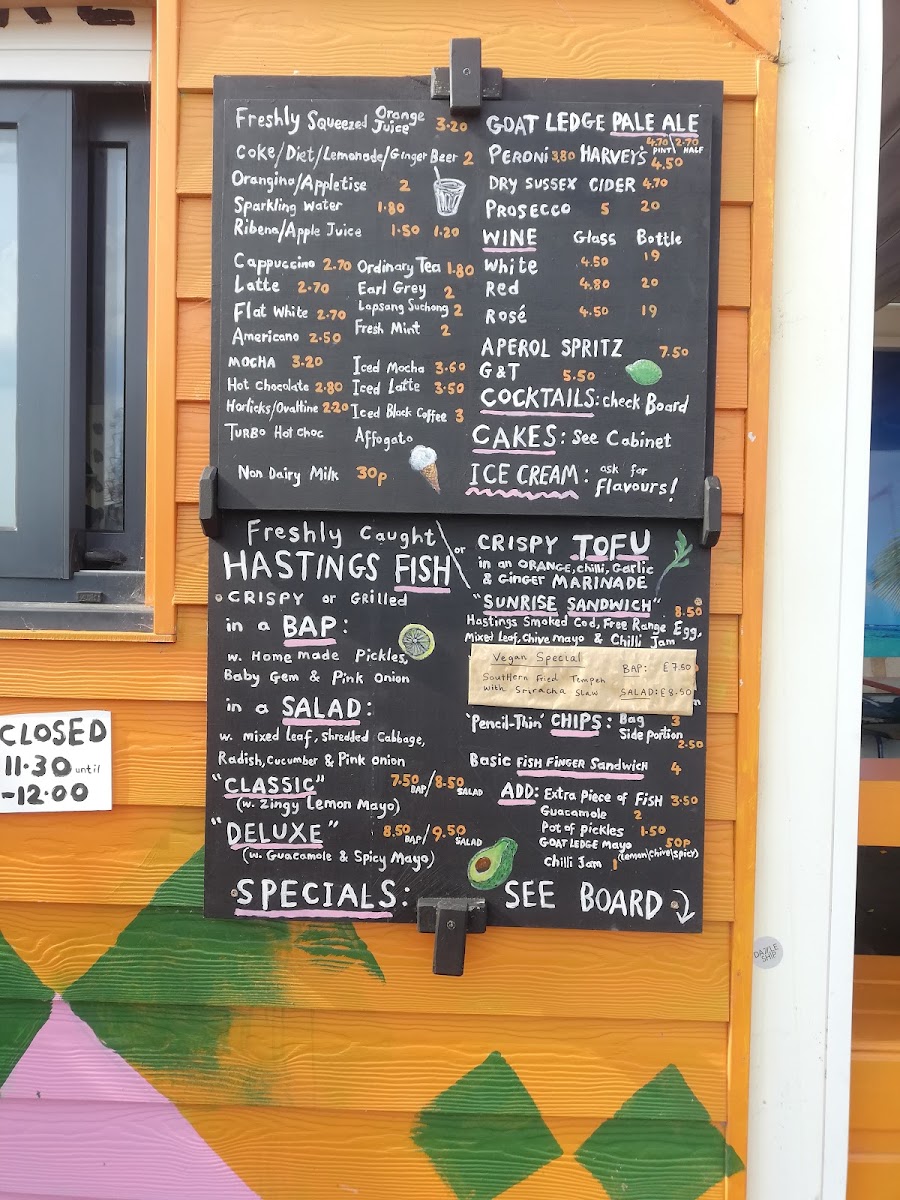 Freshly Squeezed Orange Juice 3.20
Coke/Diet/Lemonade/Ginger Beer 2
Orangina/Appletise 2
Sparkling Water 1.80
Ribena/Apple Juice 1.50 1.20
Cappuccino 2.70
Latte 2.70
Flat White 2.70
Americano 2.50
MOCHA 3.20
Hot Chocolate 2.80
Horlicks/Ovaltine 2.20
TURBO Hot Choc
Ordinary Tea 1.80
Earl Grey 2
Lapsang Suchong 2
Fresh Mint 2
Iced Mocha 3.60
Iced Latte 3.50
Iced Black Coffee 3
Affogato
Non Dairy Milk 30p
GOAT LEDGE PALE ALE
4.70 PINT \ 2.70 HALF
PERONI 3.80 HARVEY'S 4.50
DRY SUSSEX CIDER 4.70
PROSECCO 5 20
WINE Glass Bottle
White 4.50 19
Red 4.80 20
Rosé 4.50 19
APEROL SPRITZ 7.50
G&T 5.50
COCKTAILS: check Board
CAKES: See Cabinet
ICE CREAM: ask for flavours!
Freshly Caught
HASTINGS FISH or
CRISPY or GRilled
in a BAP:
w. Home made Pickles,
Baby Gem & Pink Onion
in a SALAD:
w. mixed leaf, Shredded Cabbage,
Radish, Cucumber & Pink onion
"CLASSIC" 7.50 BAP/8.50 SALAD
(w. Zingy Lemon Mayo)
"DELUXE" 8.50 BAP/9.50 SALAD
(w. Guacamole & Spicy Mayo)
CRISPY TOFU
in an ORANGE, chilli, Garlic
& Ginger MARINADE
"SUNRISE SANDWICH" 8.50
Hastings Smoked Cod, Free Range Egg,
Mixed Leaf, Chive mayo & Chilli Jam
Vegan Special
Southern Fried Tempeh
with Sriracha Slaw
BAP: £7.50
SALAD: £8.50
'Pencil-Thin' CHIPS: Bag 3
Side portion 2.50
Basic FISH FINGER SANDWICH 4
ADD: Extra Piece of FISH 3.50
Guacamole 2
Pot of pickles 1.50
GOAT LEDGE Mayo 50p
(Lemon\Chive\Spicy)
Chilli Jam 1
SPECIALS: SEE BOARD
CLOSED
11.30 until
-12.00
DAZZLE
SHIP